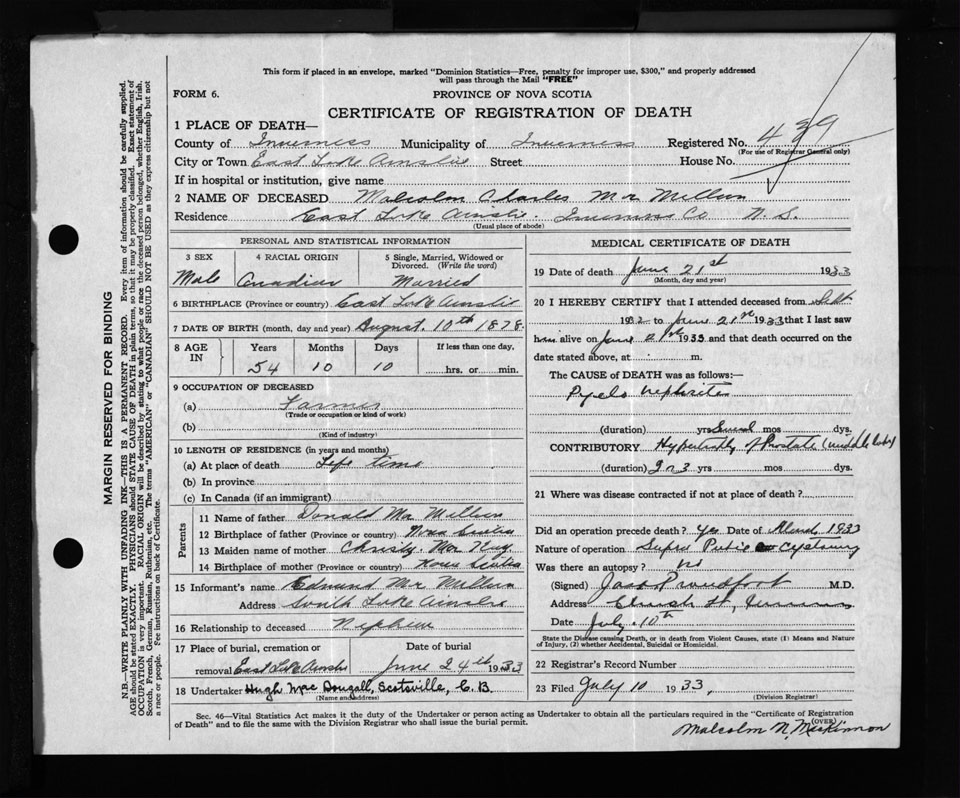 This form if placed in an envelope, marked "Dominion Statistics—Free, penalty for improper use, $300," and properly addressed
will pass through the Mail "FREE"
FORM 6.
PROVINCE OF NOVA SCOTIA
CERTIFICATE OF REGISTRATION OF DEATH
1 PLACE OF DEATH—
County of Inverness Municipality of Inverness Registered No. 439
(For use of Registrar General only)
City or Town East Lake Ainslie Street House No.
If in hospital or institution, give name
2 NAME OF DECEASED Malcolm Charles Mc Millan
Residence East Lake Ainslie. Inverness Co N. S.
(Usual place of abode)
PERSONAL AND STATISTICAL INFORMATION
3 SEX 4 RACIAL ORIGIN 5 Single, Married, Widowed or
Divorced. (Write the word)
Male Canadian Married
6 BIRTHPLACE (Province or country) East Lake Ainslie
7 DATE OF BIRTH (month, day and year) August. 10th 1878
8 AGE IN Years Months Days If less than one day,
54 10 10 hrs. or min.
9 OCCUPATION OF DECEASED
(a) Farmer
(Trade or occupation or kind of work)
(b)
(Kind of industry)
10 LENGTH OF RESIDENCE (in years and months)
(a) At place of death Life time
(b) In province
(c) In Canada (if an immigrant)
Parents
11 Name of father Donald Mc Millan
12 Birthplace of father (Province or country) Nova Scotia
13 Maiden name of mother Christy Mc Kay
14 Birthplace of mother (Province or country) Nova Scotia
15 Informant's name Edmund Mc Millan
Address South Lake Ainslie
16 Relationship to deceased Nephew
17 Place of burial, cremation or Date of burial
removal East Lake Ainslie June 24th 1933
18 Undertaker Hugh MacDougall, Scotsville, C. B.
(Name and address)
MEDICAL CERTIFICATE OF DEATH
19 Date of death June 21st 1933
(Month, day and year)
20 I HEREBY CERTIFY that I attended deceased from Sept
1932 to June 21st 1933 that I last saw
him alive on June 21st 1933 and that death occurred on the
date stated above, at m.
The CAUSE of DEATH was as follows:—
Pyelo nephritis
(duration) yrs Several mos dys.
CONTRIBUTORY Hypertrophy of Prostate (middle lobe)
(duration) 2 or 3 yrs mos dys.
21 Where was disease contracted if not at place of death?
Did an operation precede death? Yes Date of March, 1933
Nature of operation Supra Pubic Cystomy
Was there an autopsy? No
(Signed) Jas Proudfoot M.D.
Address Church St, Inverness
Date July 10th
State the Disease causing Death, or in death from Violent Causes, state (1) Means and Nature
of Injury, (2) whether Accidental, Suicidal or Homicidal.
22 Registrar's Record Number
23 Filed July 10 1933,
(Division Registrar)
Sec. 46—Vital Statistics Act makes it the duty of the Undertaker or person acting as Undertaker to obtain all the particulars required in the "Certificate of Registration
of Death" and to file the same with the Division Registrar who shall issue the burial permit.
(OVER)
Malcolm N. McKinnon
MARGIN RESERVED FOR BINDING
N.B.—WRITE PLAINLY WITH UNFADING INK—THIS IS A PERMANENT RECORD. Every item of information should be carefully supplied.
AGE should be stated EXACTLY. PHYSICIANS should STATE CAUSE OF DEATH in plain terms, so that it may be properly classified. Exact statement of
OCCUPATION is very important. RACIAL ORIGIN will be described by stating to what people or race the deceased person belonged, whether English, Irish,
Scotch, French, German, Russian, Ruthenian, etc. The terms "AMERICAN" or "CANADIAN" SHOULD NOT BE USED, as they express citizenship but not
a race or people. Fee Instructions on back of Certificate.